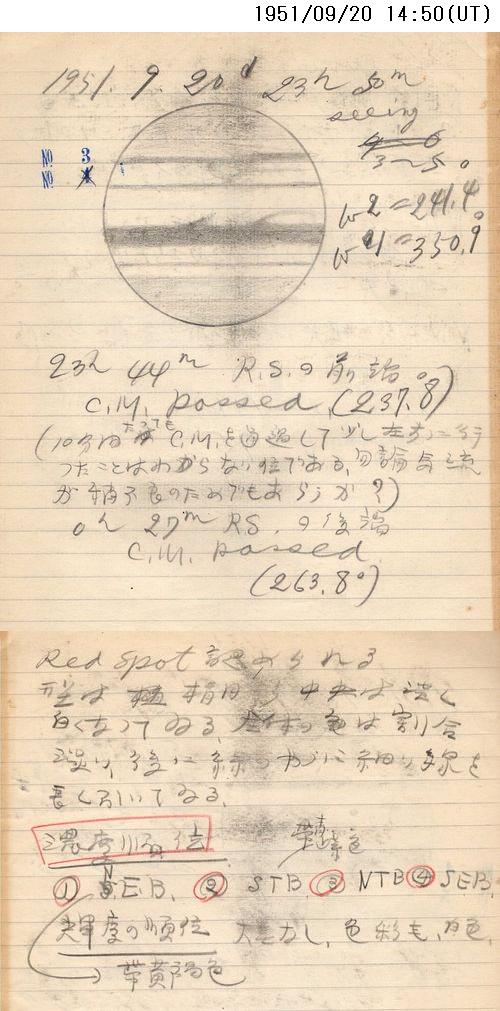 1951/09/20 14:50(UT)
1951. 9. 20d 23h 50m
seeing
4~6
3~5.
NO 3
NO 4
ω2=241.4°
ω1=350.9°
23h 44m R.S.の前端
C.M. passed. (237.8°)
(10分間たっても C.M.を通過して少し左方に行
ったことはわからない位である, 勿論気流
が稍不良のためでもあらうか?)
0h 27m R.S.の後端
C.M. passed.
(263.8°)
Red Spot 認められる
型は 楕円 中央は淡く
白くなってゐる. 全体の色は割合
淡い, 後に 細い線を
長く引いてゐる.
濃度順位
帯赤褐色
① N.E.B. ② STB. ③ NTB ④ SEB.
輝度の順位 大差なし, 色彩も, 白色.
帯黄褐色